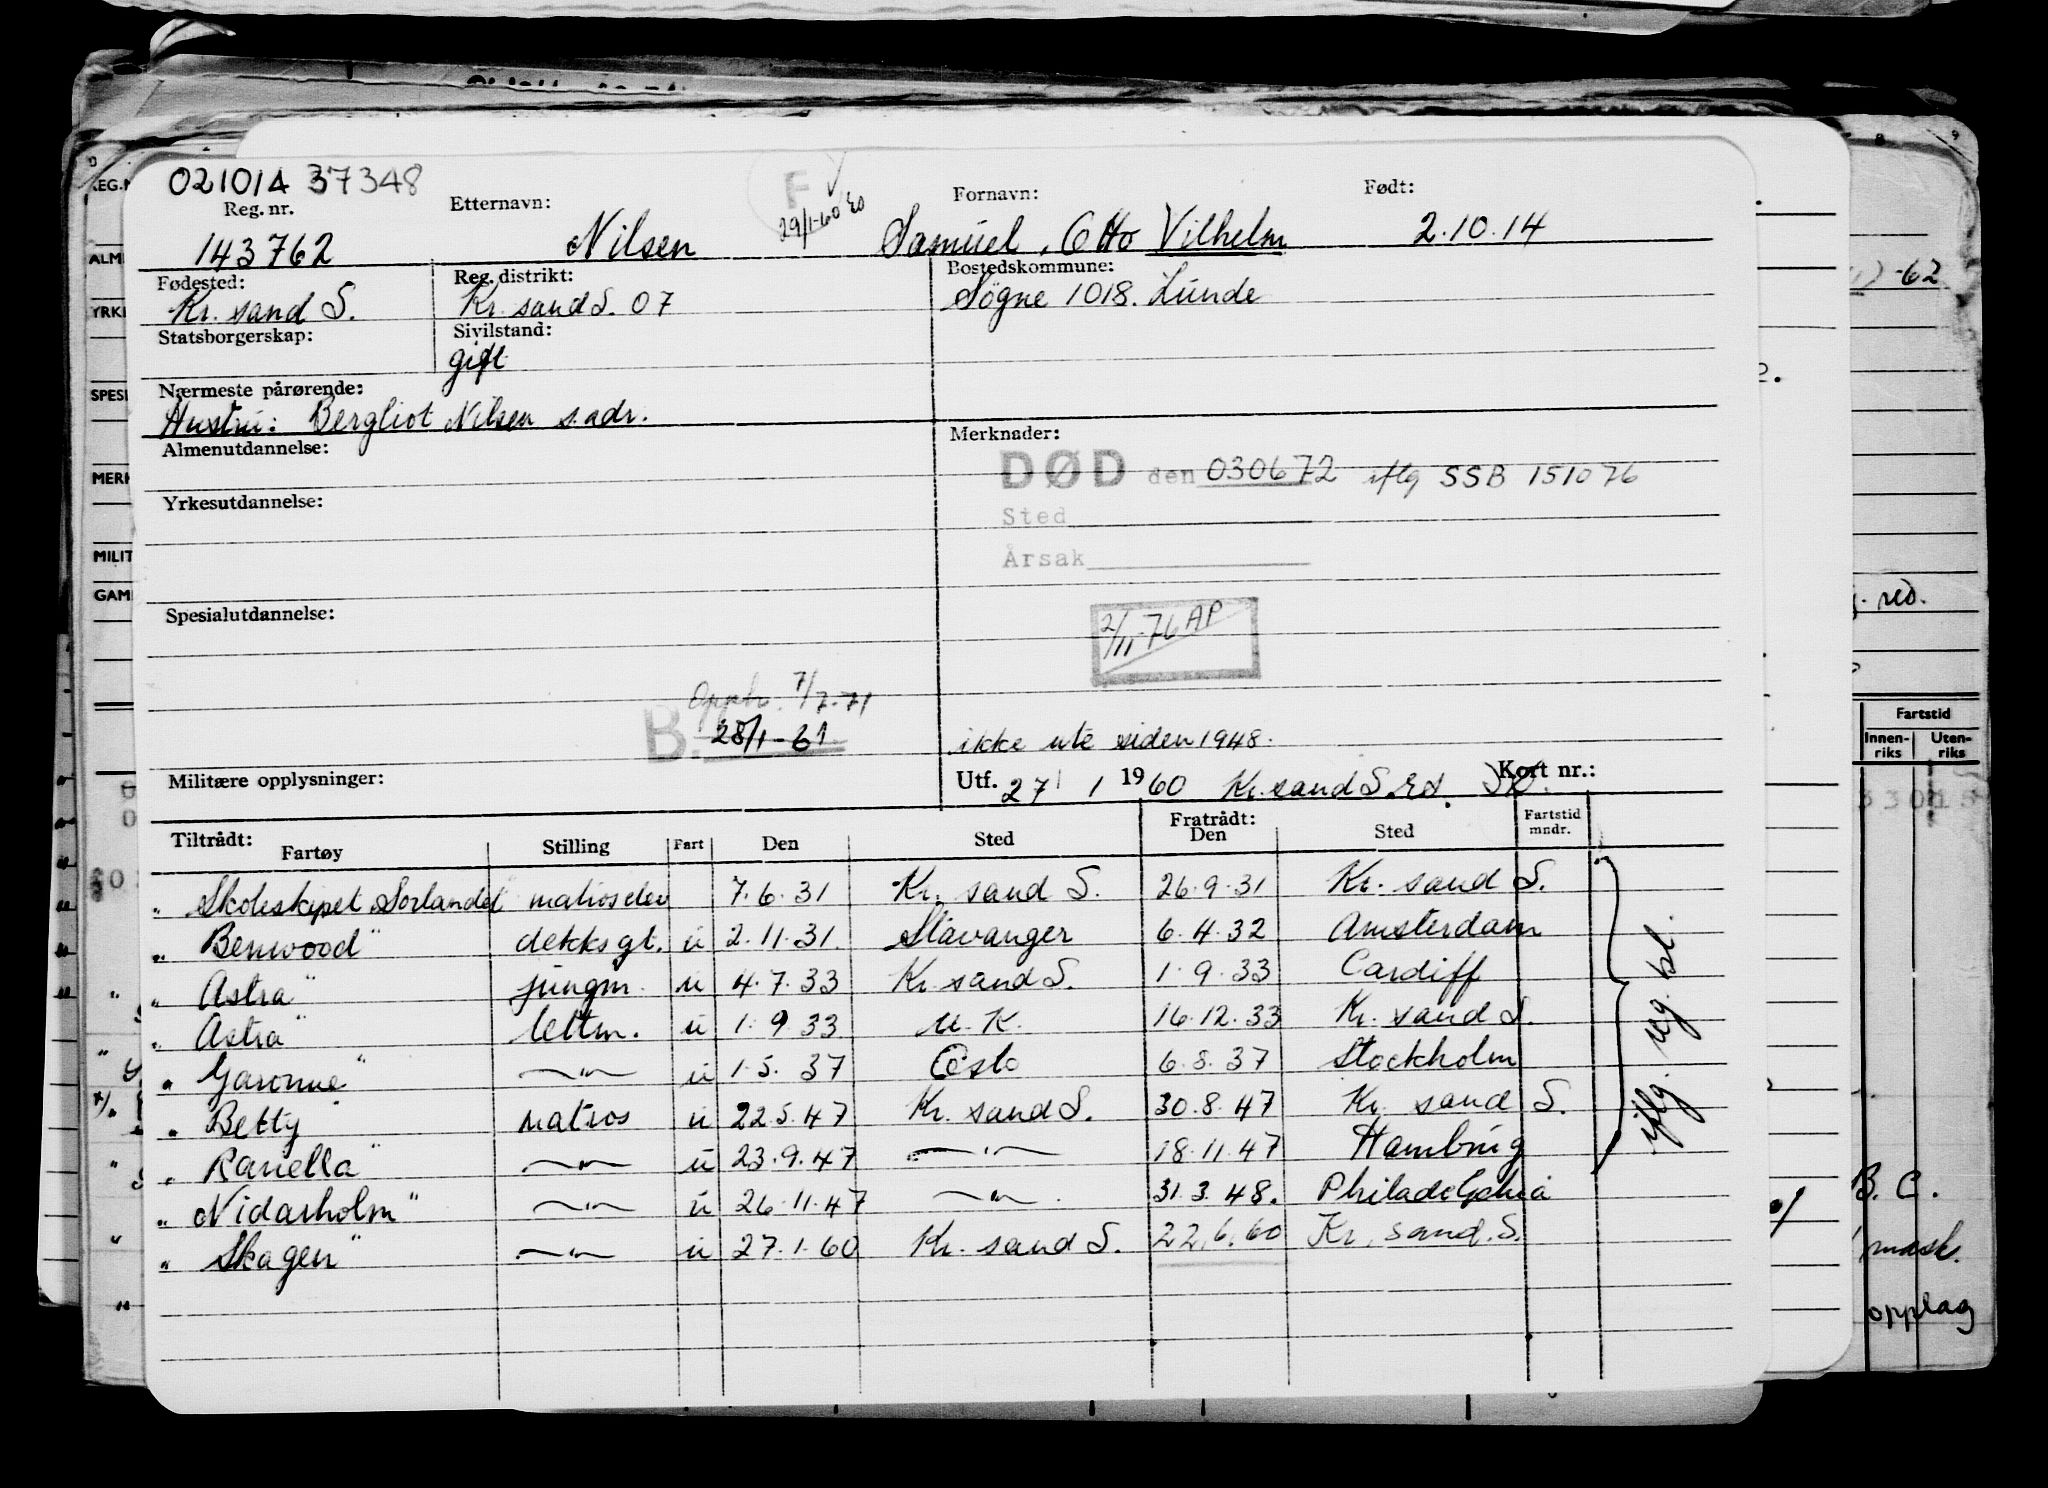 021014 37348
Reg. nr. Etternavn: F 29/1-60 Fornavn: Født:
143762 Nilsen Samuel, Otto Vilhelm 2.10.14
Fødested: Reg. distrikt: Bostedskommune:
Kr. sand S. Kr. sand S. 07 Søgne 1018. Lunde
Statsborgerskap: Sivilstand:
gift
Nærmeste pårørende:
Hustru: Bergliot Nilsen s. adr.
Almenutdannelse: Merknader:
DØD den 030672 iflg SSB 151076
Yrkesutdannelse:
Sted
Årsak
Spesialutdannelse:
2/11-76 AP
Opph. 7/7-71
B. 28/1-61
ikke ute siden 1948.
Militære opplysninger: Utf. 27/1 1960 Kr. sand S. Kort nr.:
Tiltrådt: Fratrådt: Fartstid
Fartøy Stilling Fart Den Sted Den Sted mndr.
" Skoleskipet Sørlandet" matroselev 7.6.31 Kr. sand S. 26.9.31 Kr. sand S.
" Benwood" dekksgt. u 2.11.31. Stavanger 6.4.32 Amsterdam
" Astra" jungm. u 4.7.33 Kr. sand S. 1.9.33 Cardiff
" Astra" lettm. u 1.9.33 U.K. 16.12.33 Kr. sand S.
" Garonne" —"— u 1.5.37 Oslo 6.8.37 Stockholm
" Betty" matros u 22.5.47 Kr. sand S. 30.8.47 Kr. sand S.
" Ranella" —"— u 23.9.47 —"— 18.11.47 Hamburg
" Nidarholm" —"— u 26.11.47 —"— 31.3.48. Philadelphia
" Skagen" —"— u 27.1.60 Kr. sand S. 22.6.60 Kr. sand. S.
iflg. reg. bl.
REG.N
ALM
YRK
SPES
MERK
MILIT
GAM
-62
Fartstid
Innen-riks Uten-riks
B. C.
mask.
opplag